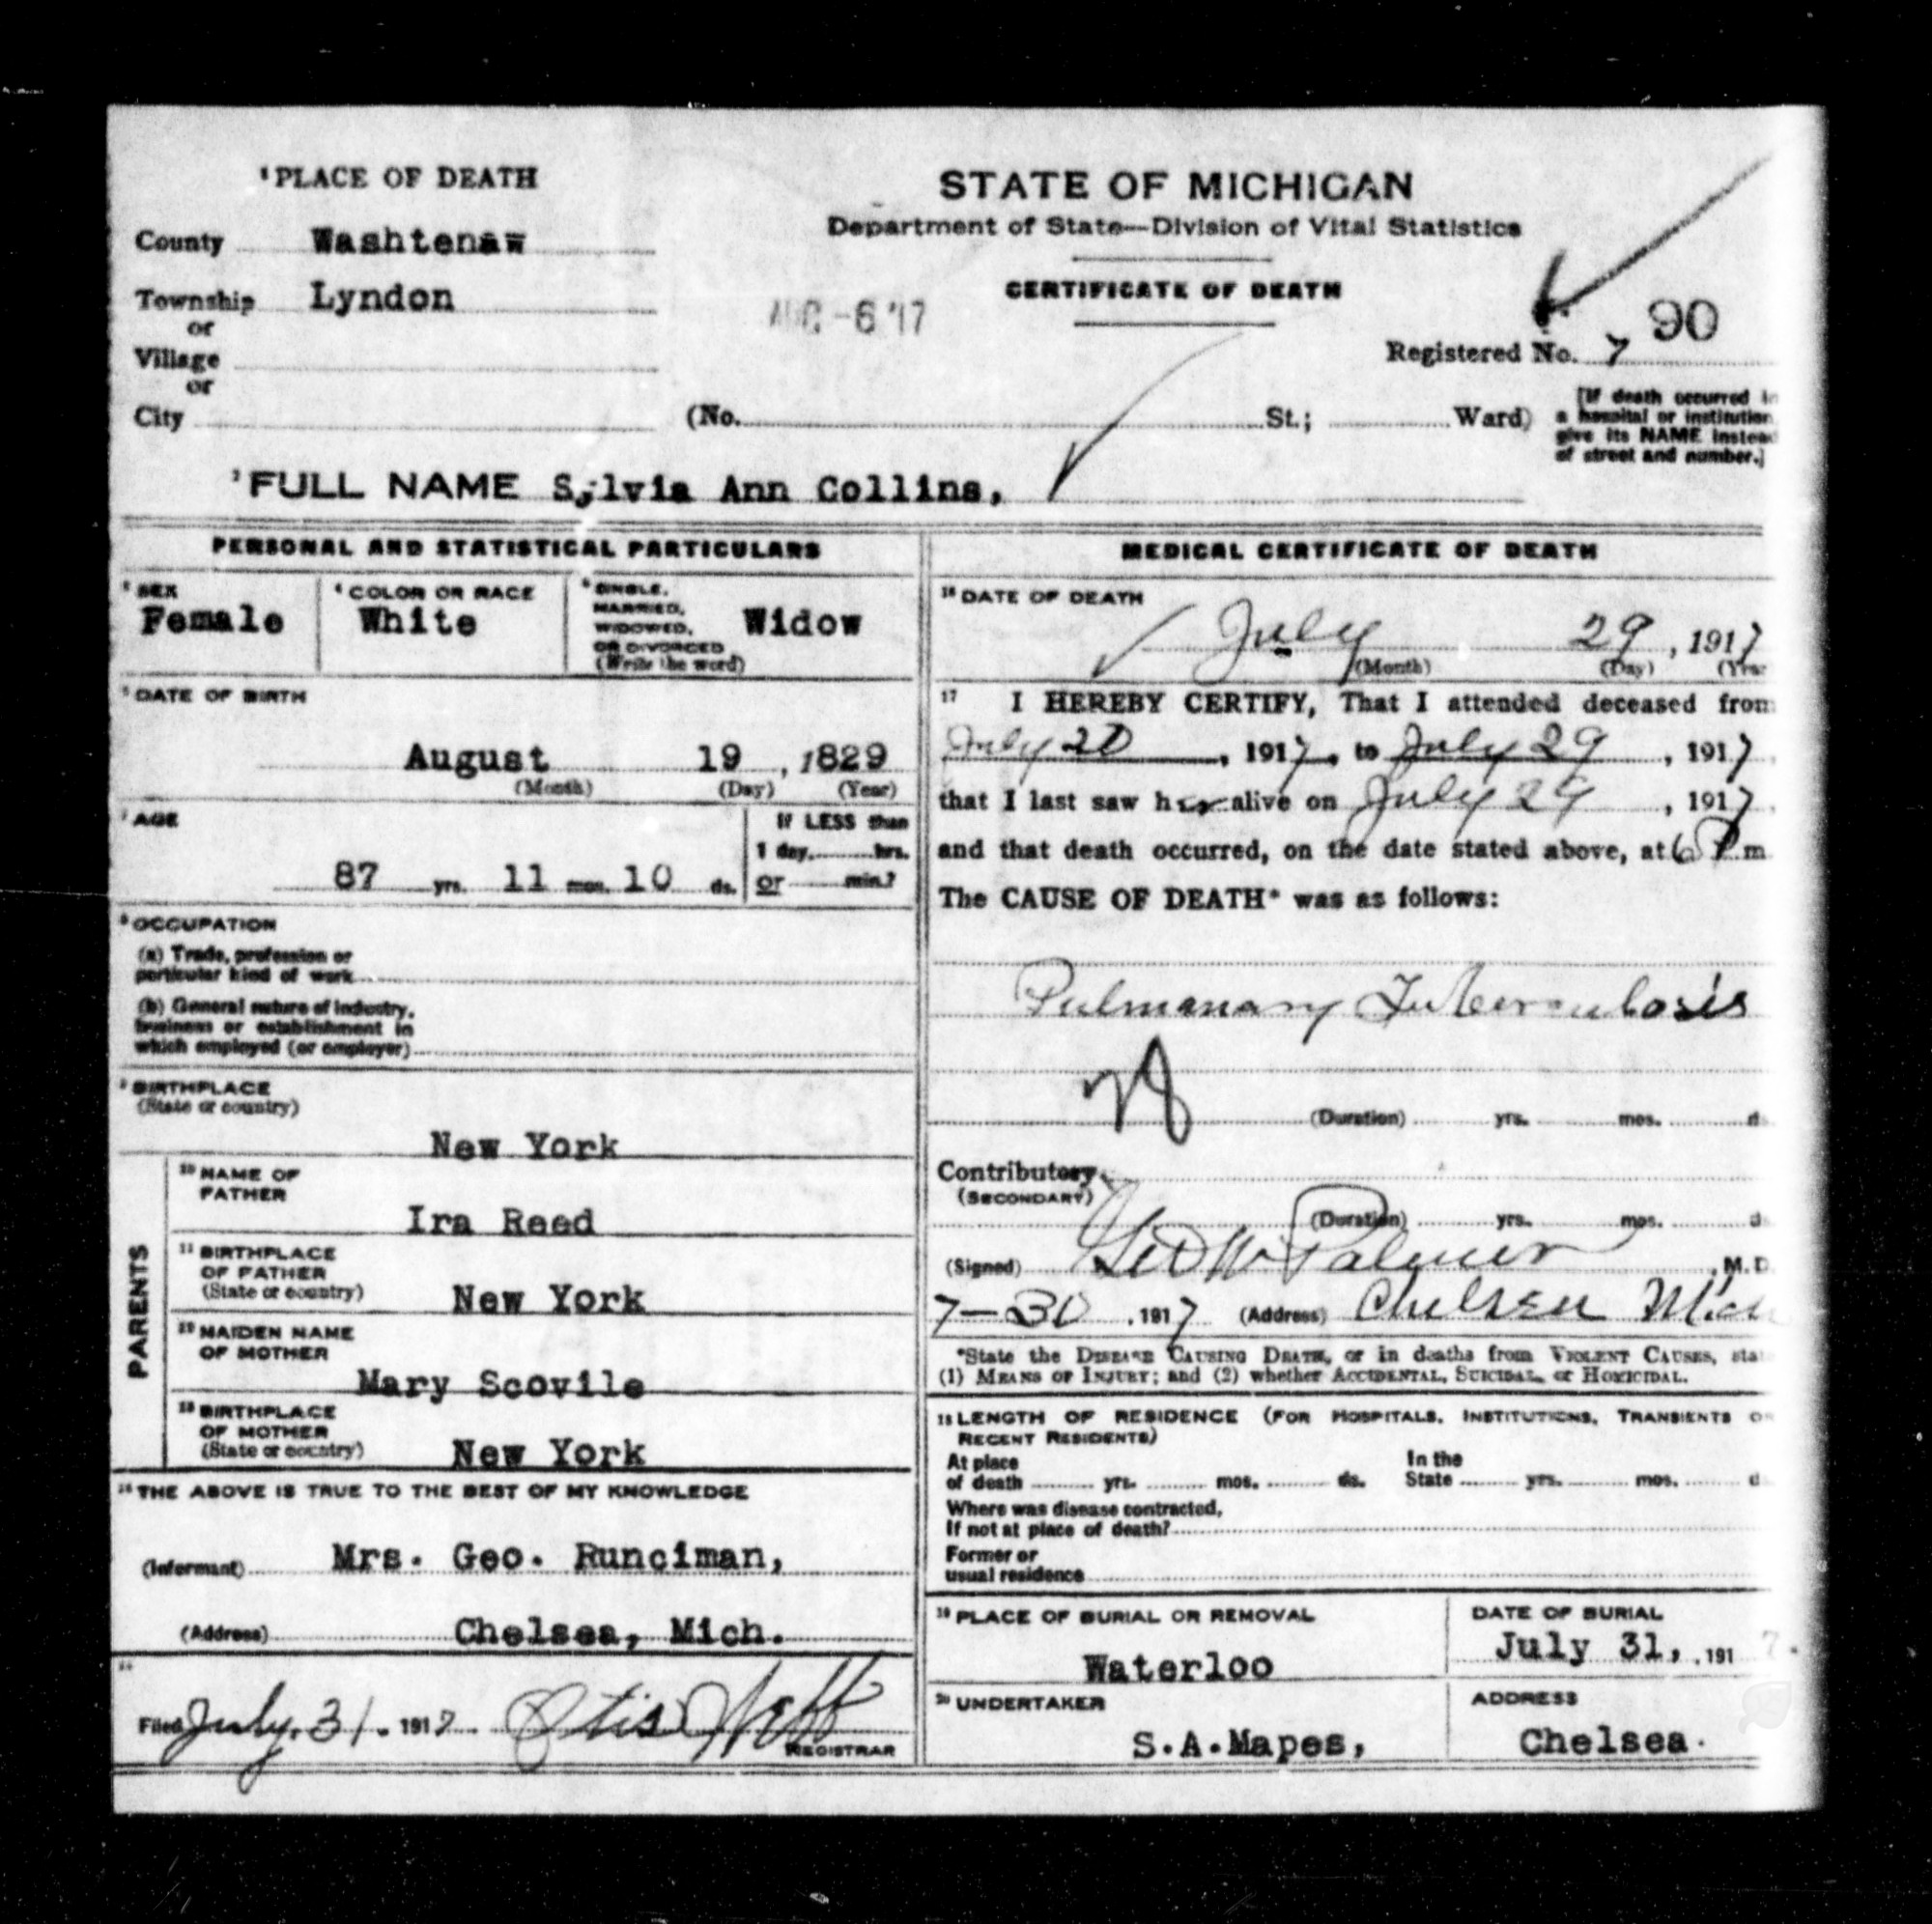 ¹PLACE OF DEATH
County Washtenaw
Township Lyndon
or
Village
or
City
STATE OF MICHIGAN
Department of State—Division of Vital Statistics
CERTIFICATE OF DEATH
AUG -6 '17
90
Registered No. 7
(No. St.; Ward)
[If death occurred in
a hospital or institution
give its NAME instead
of street and number.]
²FULL NAME Sylvia Ann Collins,
PERSONAL AND STATISTICAL PARTICULARS
³ SEX
Female
⁴ COLOR OR RACE
White
⁵ SINGLE,
MARRIED,
WIDOWED,
OR DIVORCED
(Write the word)
Widow
⁶ DATE OF BIRTH
August 19, 1829
(Month) (Day) (Year)
⁷ AGE
87 yrs. 11 mos. 10 ds.
If LESS than
1 day, hrs.
or min.?
⁸ OCCUPATION
(a) Trade, profession or
particular kind of work
(b) General nature of industry,
business or establishment in
which employed (or employer)
⁹ BIRTHPLACE
(State or country)
New York
PARENTS
¹⁰ NAME OF
FATHER
Ira Reed
¹¹ BIRTHPLACE
OF FATHER
(State or country)
New York
¹² MAIDEN NAME
OF MOTHER
Mary Scovile
¹³ BIRTHPLACE
OF MOTHER
(State or country)
New York
¹⁴ THE ABOVE IS TRUE TO THE BEST OF MY KNOWLEDGE
(Informant) Mrs. Geo. Runciman,
(Address) Chelsea, Mich.
¹⁵
Filed July 31. 1917 Otis Webb
REGISTRAR
MEDICAL CERTIFICATE OF DEATH
¹⁶ DATE OF DEATH
July 29, 1917
(Month) (Day) (Year
¹⁷ I HEREBY CERTIFY, That I attended deceased from
July 20, 1917, to July 29, 1917,
that I last saw her alive on July 29, 1917,
and that death occurred, on the date stated above, at 6 P m
The CAUSE OF DEATH* was as follows:
Pulmanary Tuberculosis
(Duration) yrs. mos. d
Contributory
(SECONDARY)
(Duration) yrs. mos. ds
(Signed) Geo W Palmer, M.D.
7-30, 1917 (Address) Chelsea Mich
*State the DISEASE CAUSING DEATH, or in deaths from VIOLENT CAUSES, state
(1) MEANS OF INJURY; and (2) whether ACCIDENTAL, SUICIDAL, or HOMICIDAL.
¹⁸ LENGTH OF RESIDENCE (FOR HOSPITALS, INSTITUTIONS, TRANSIENTS OR
RECENT RESIDENTS)
At place
of death yrs. mos. ds.
In the
State yrs. mos. d
Where was disease contracted,
If not at place of death?
Former or
usual residence
¹⁹ PLACE OF BURIAL OR REMOVAL
Waterloo
DATE OF BURIAL
July 31, 1917.
²⁰ UNDERTAKER
S.A.Mapes,
ADDRESS
Chelsea.